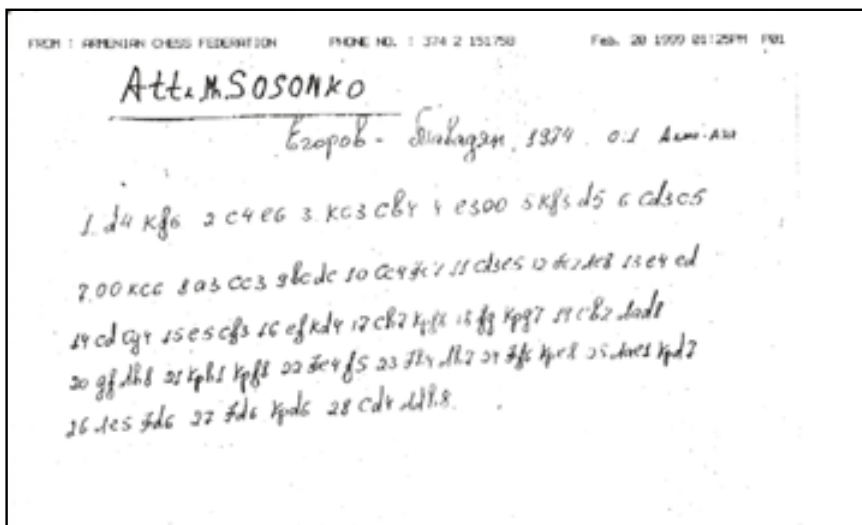 FROM : ARMENIAN CHESS FEDERATION PHONE NO. : 374 2 151758 Feb. 20 1999 01:25PM P01
Att. M. SOSONKO
Егоров - 1974 0:1
1. d4 Kf6 2 c4 e6 3. Kc3 Cb4 4 e3 00 5 Kf3 d5 6 Cd3 c5
7. 00 Kc6 8 a3 Cc3 9 bc dc 10 Cc4 Фc7 11 Cd3 e5 12 Фc2 Лe8 13 e4 ed
14 cd Cg4 15 e5 Cf3 16 ef Kd4 17 Ch7 Kpf8 18 fg Kpg7 19 Cb2 Лad8
20 gf Лh8 21 Kph1 Kpf8 22 Фe4 f5 23 Лh7 24 Фf6 Kpe8 25 Лae1 Kpd7
26 Лe5 Фd6 27 Фd6 Kpd6 28 Cd4 Лdh8